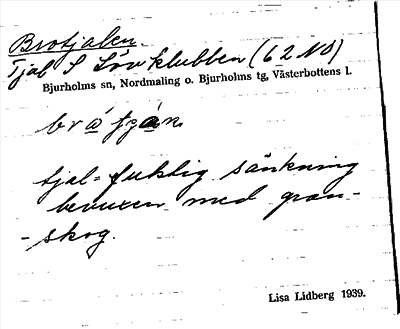 Brotjalen.
Tjal S Lövklubben (62 NO)
Bjurholms sn, Nordmaling o. Bjurholms tg, Västerbottens l.
tjal = fuktig sänkning
bevuxen med gran-
-skog.
Lisa Lidberg 1939.